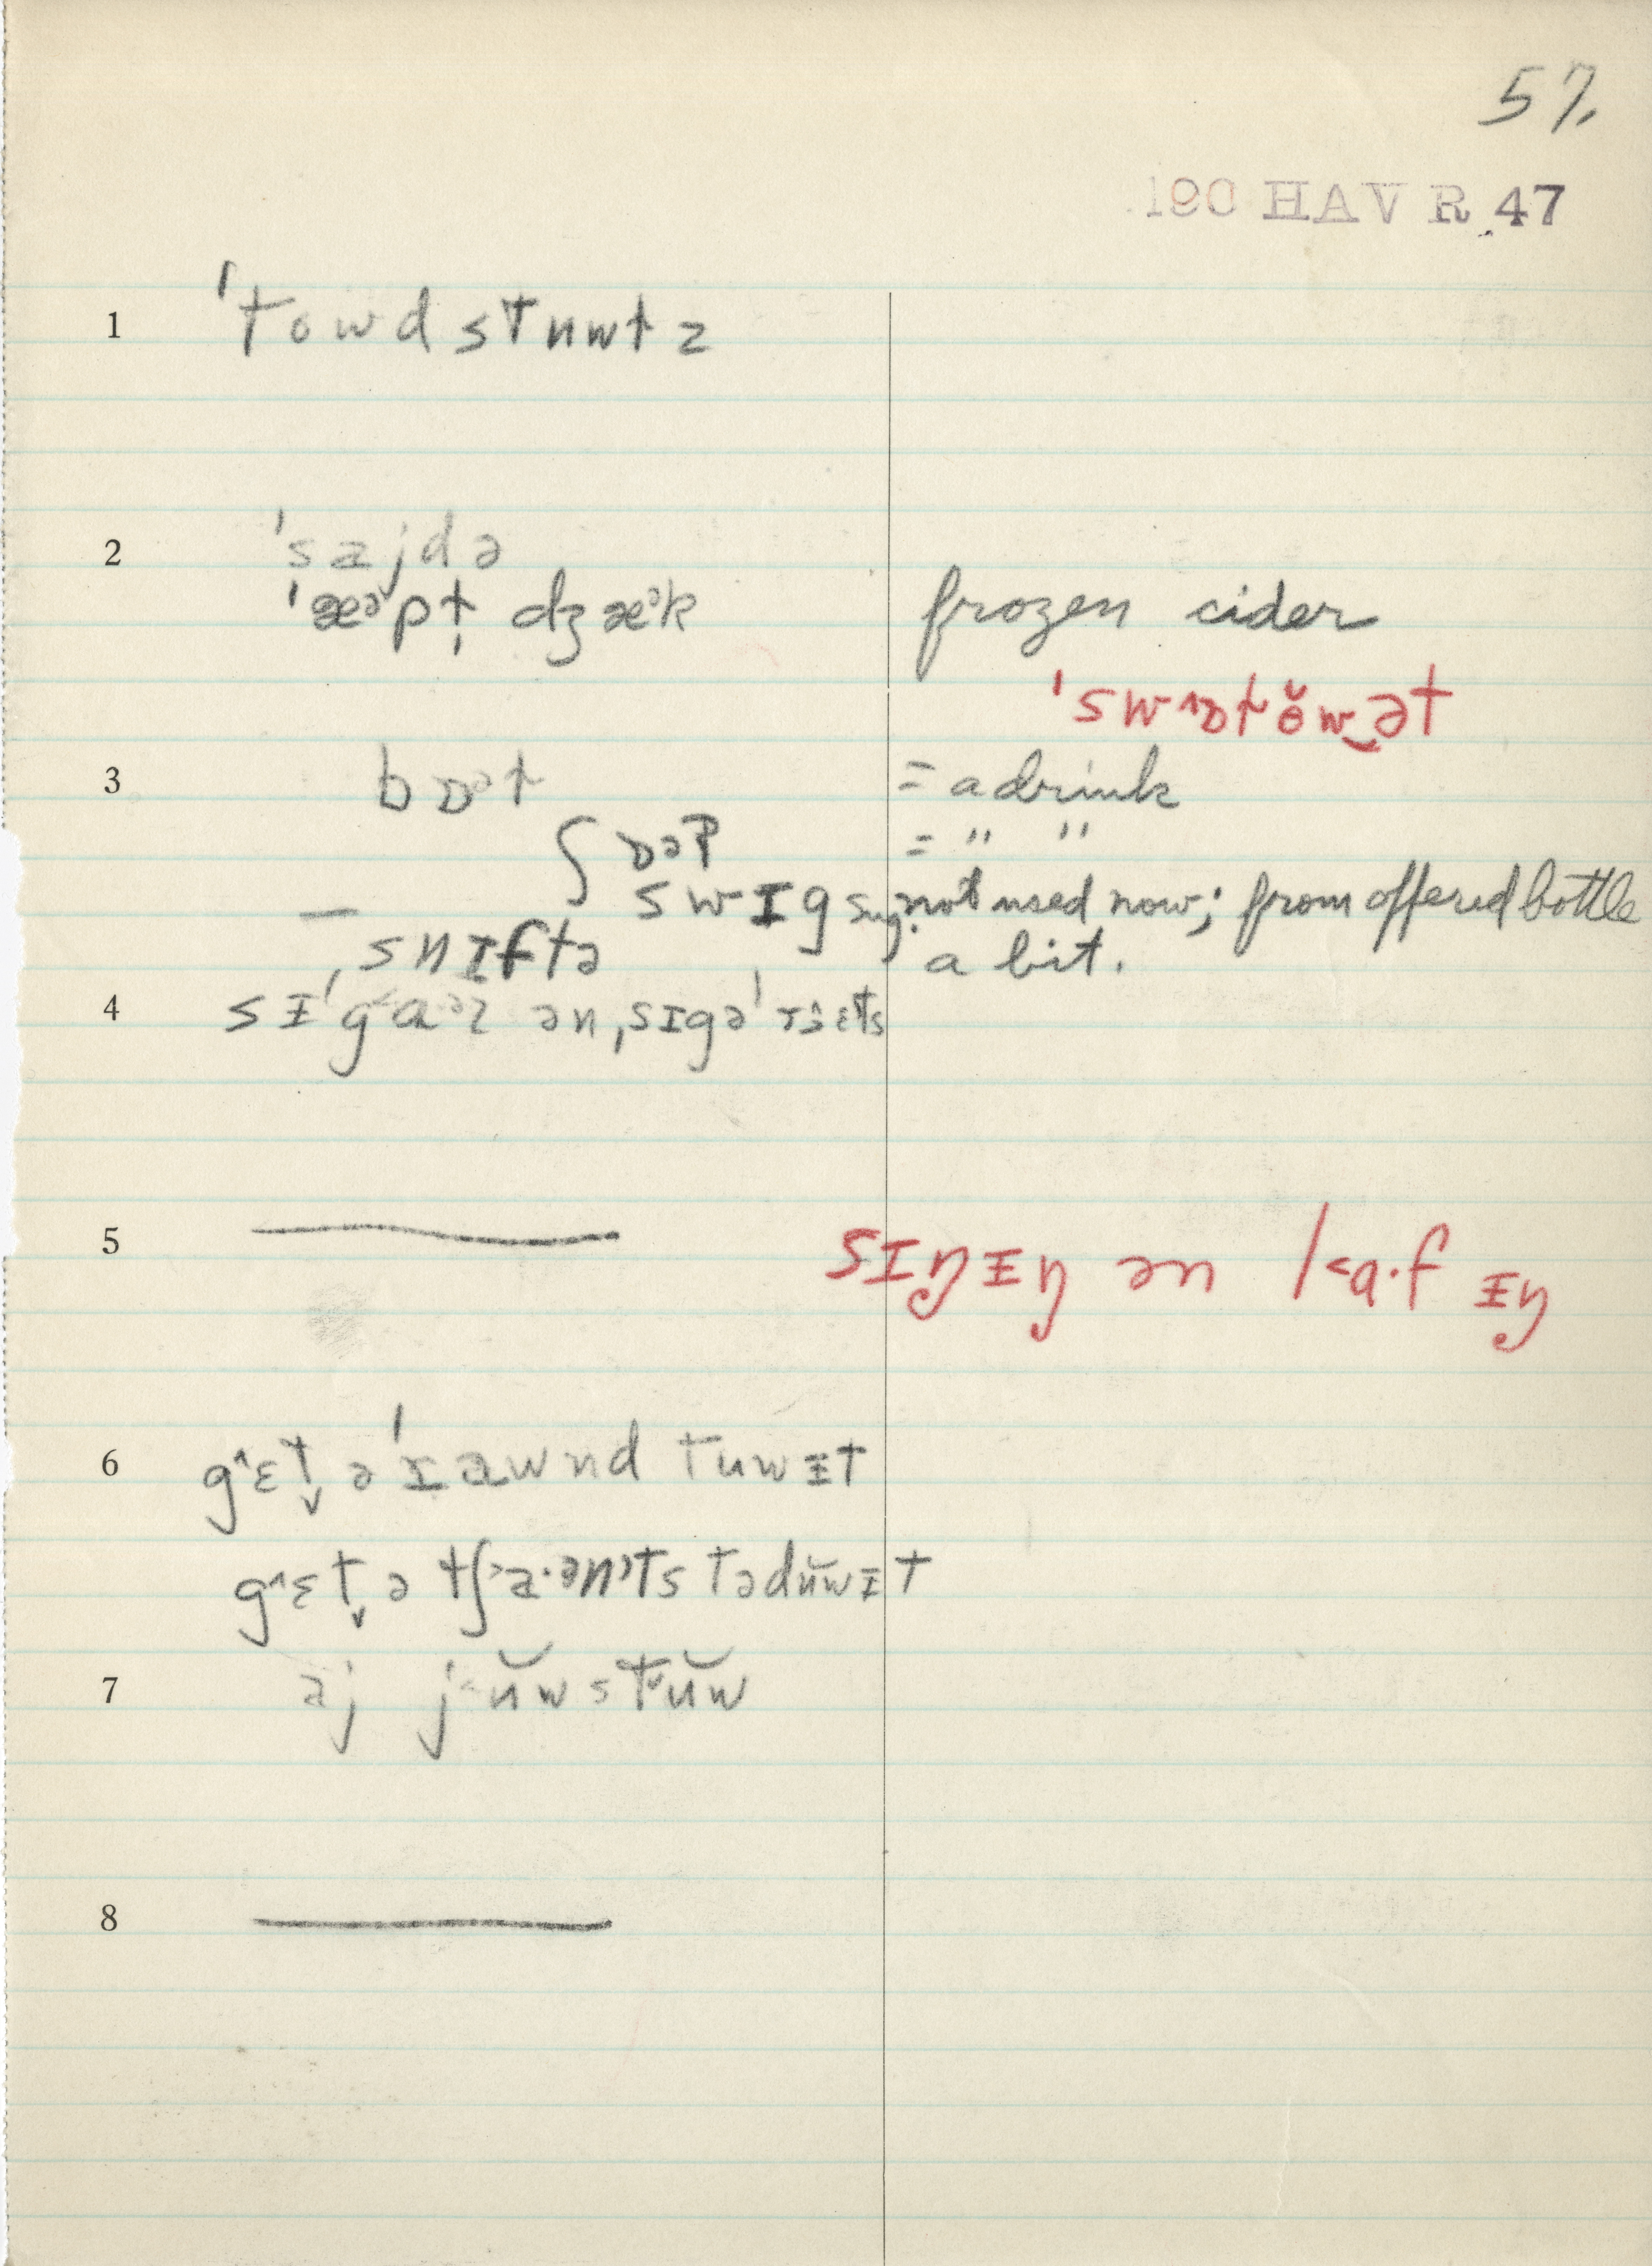 57.
190 HAV R 47
1 ˈtowdstuwɫz
2 ˈsajdə
ˈæᵊpɫ̩ dʒæᵊk frozen cider
ˈswɒtŏw‿ət
3 bɒᵊt = a drink
ʃ ɒəp = " "
— swɪg sug. not used now; from offered bottle
ˌsnɪftə a bit.
4 sɪˈga˂ᵊz ən ˌsɪgəˈrɛts
5 sɪŋɪŋ ən la·fɪŋ
6 g˄ɛt̬ əˈrawnd tuwɪt
g˄ɛt̬ ə tʃ˃a·ənˀts təduwɪt
7 aj j˂ŭwstŭw
8